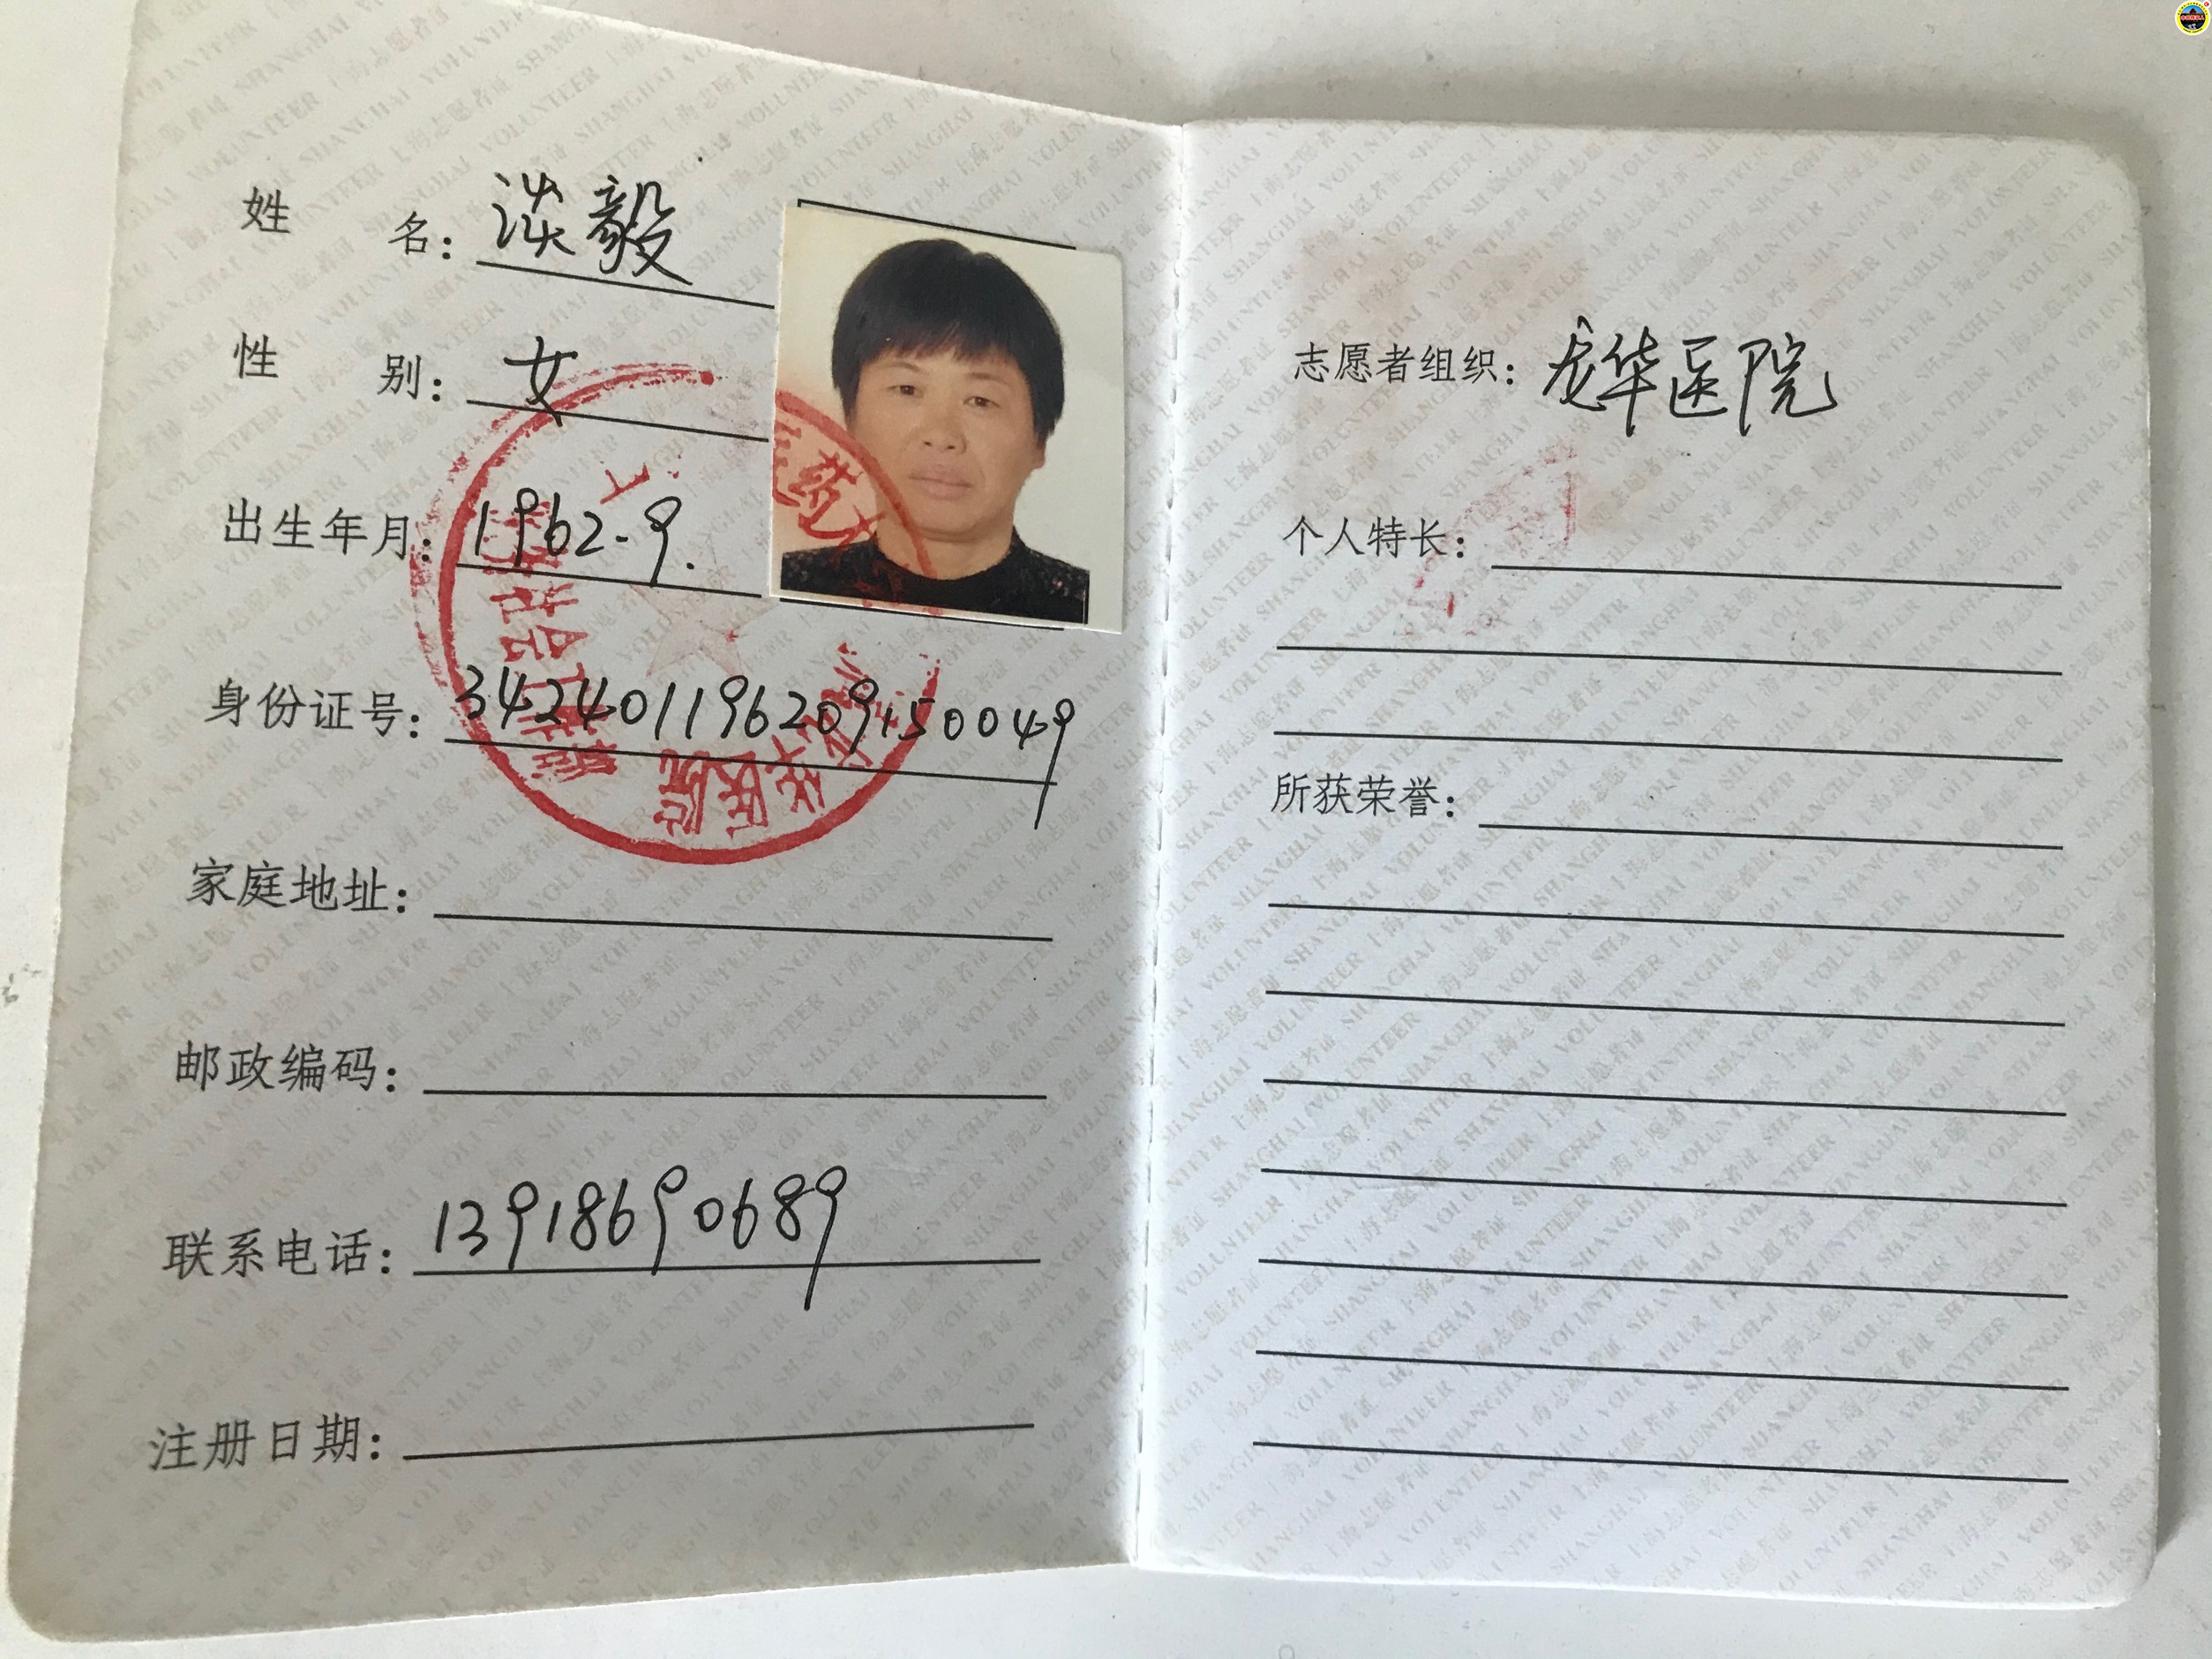 姓名：淡毅
性别：女
出生年月：1962.9.
身份证号：342401196209150049
家庭地址：
邮政编码：
联系电话：13918690689
注册日期：
志愿者组织：龙华医院
个人特长：
所获荣誉：